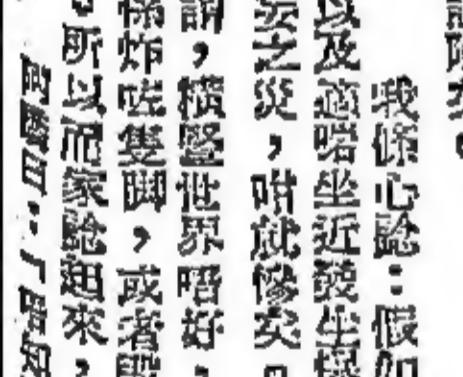 我條心諗：假如
以及適啱坐近發生爆
之災，咁就慘矣。
，橫豎世界唔好，
係炸咗隻脚，或者
。所以而家諗起來，
日：「唔知